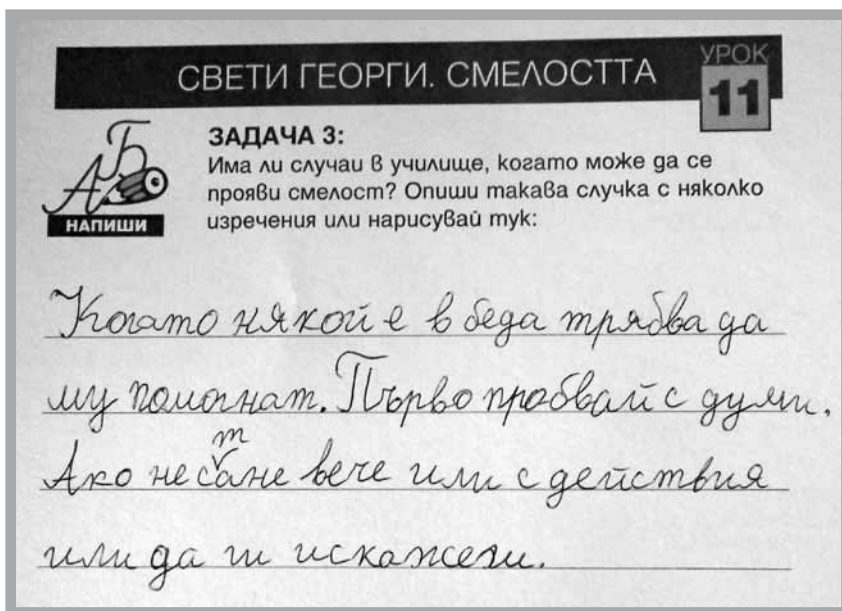 СВЕТИ ГЕОРГИ. СМЕЛОСТТА
УРОК
11
АБ
НАПИШИ
ЗАДАЧА 3:
Има ли случаи в училище, когато може да се
прояви смелост? Опиши такава случка с няколко
изречения или нарисувай тук:
Когато някой е в беда трябва да
му помогнат. Първо пробвай с думи.
Ако не стане вече или с действия
или да ги искажеш.